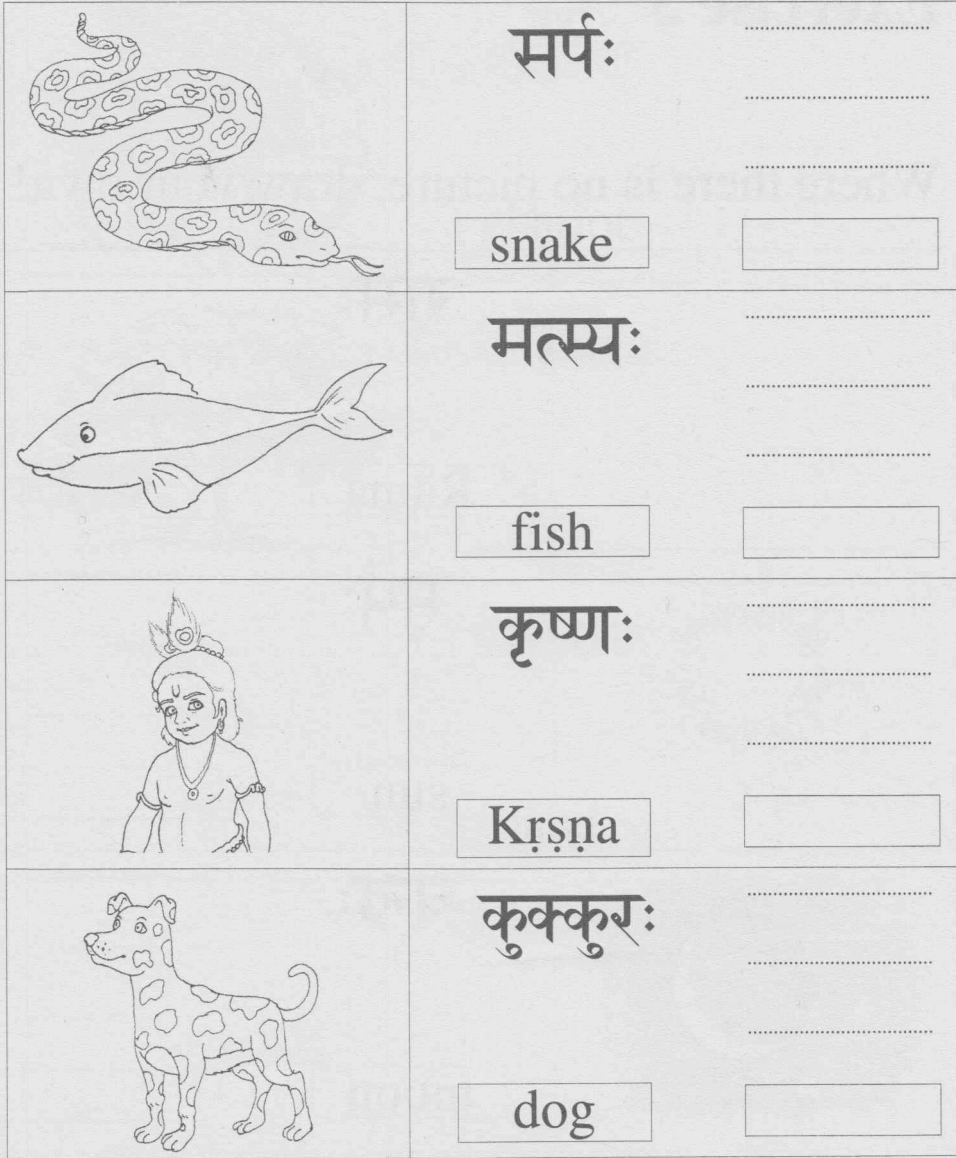 सर्पः
snake
मत्स्यः
fish
कृष्णः
Kṛṣṇa
कुक्कुरः
dog